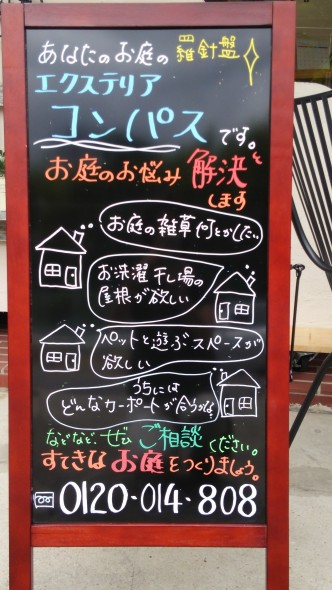 あなたのお庭の羅針盤
エクステリア
コンパス です。
お庭のお悩み 解決
します
お庭の雑草何とかしたい
お洗濯干し場の
屋根が欲しい
ペットと遊ぶスペースが
欲しい
うちには
どんなカーポートが合うかな
などなど、ぜひ ご相談 ください。
すてきな お庭 をつくりましょう。
0120-014-808